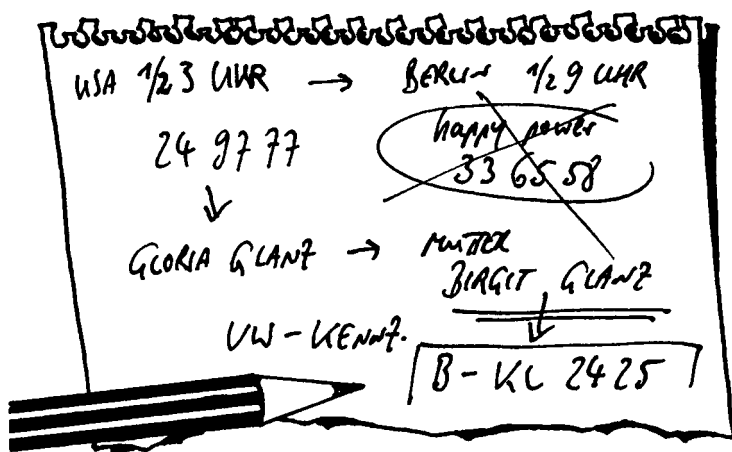 USA 1/2 3 UHR → BERLIN 1/2 9 UHR
happy power
24 97 77
33 65 58
↓
GLORIA GLANZ → MUTTER
BIRGIT GLANZ
↓
VW-KENNZ.
B-KL 2425